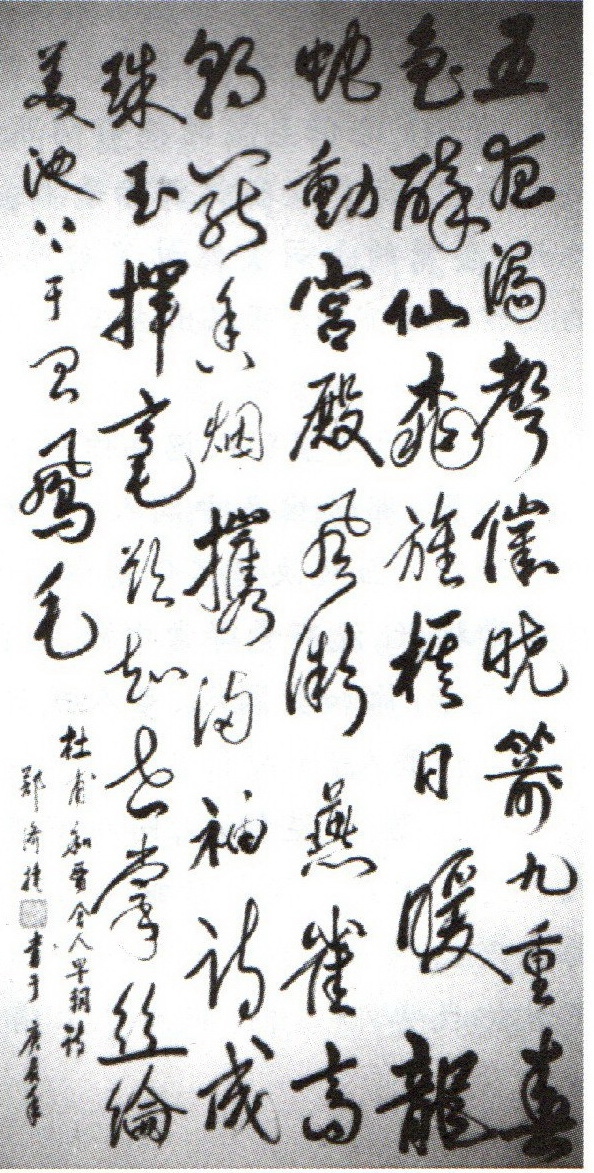 五夜漏聲催曉箭九重春
色醉仙桃旌旗日暖龍
蛇動宮殿風微燕雀高
朝罷香烟攜滿袖詩成
珠玉揮毫欲知世掌絲綸
美池上于鳳毛
杜甫和賈舍人早朝詩
鄭濟書于庚辰年